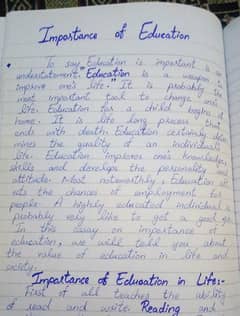 Importance of Education
To say Education is important is an
understatement. Education is a weapon to
improve one's life. It is probably the
most important tool to change one's
life. Education for a child begins at
home. It is a life long process that
ends with death. Education certainly deter
mines the quality of an individual's
life. Education improves one's knowledge,
skills and develops the personality and
attitude. Most noteworthy, Education aff
ects the chances of employment for
people. A highly educated individual is
probably very likely to get a good job.
In this essay on importance of
education, we will tell you about
the value of education in life and
society.
Importance of Education in Life:-
First of all teaches the ability
of read and write. Reading and